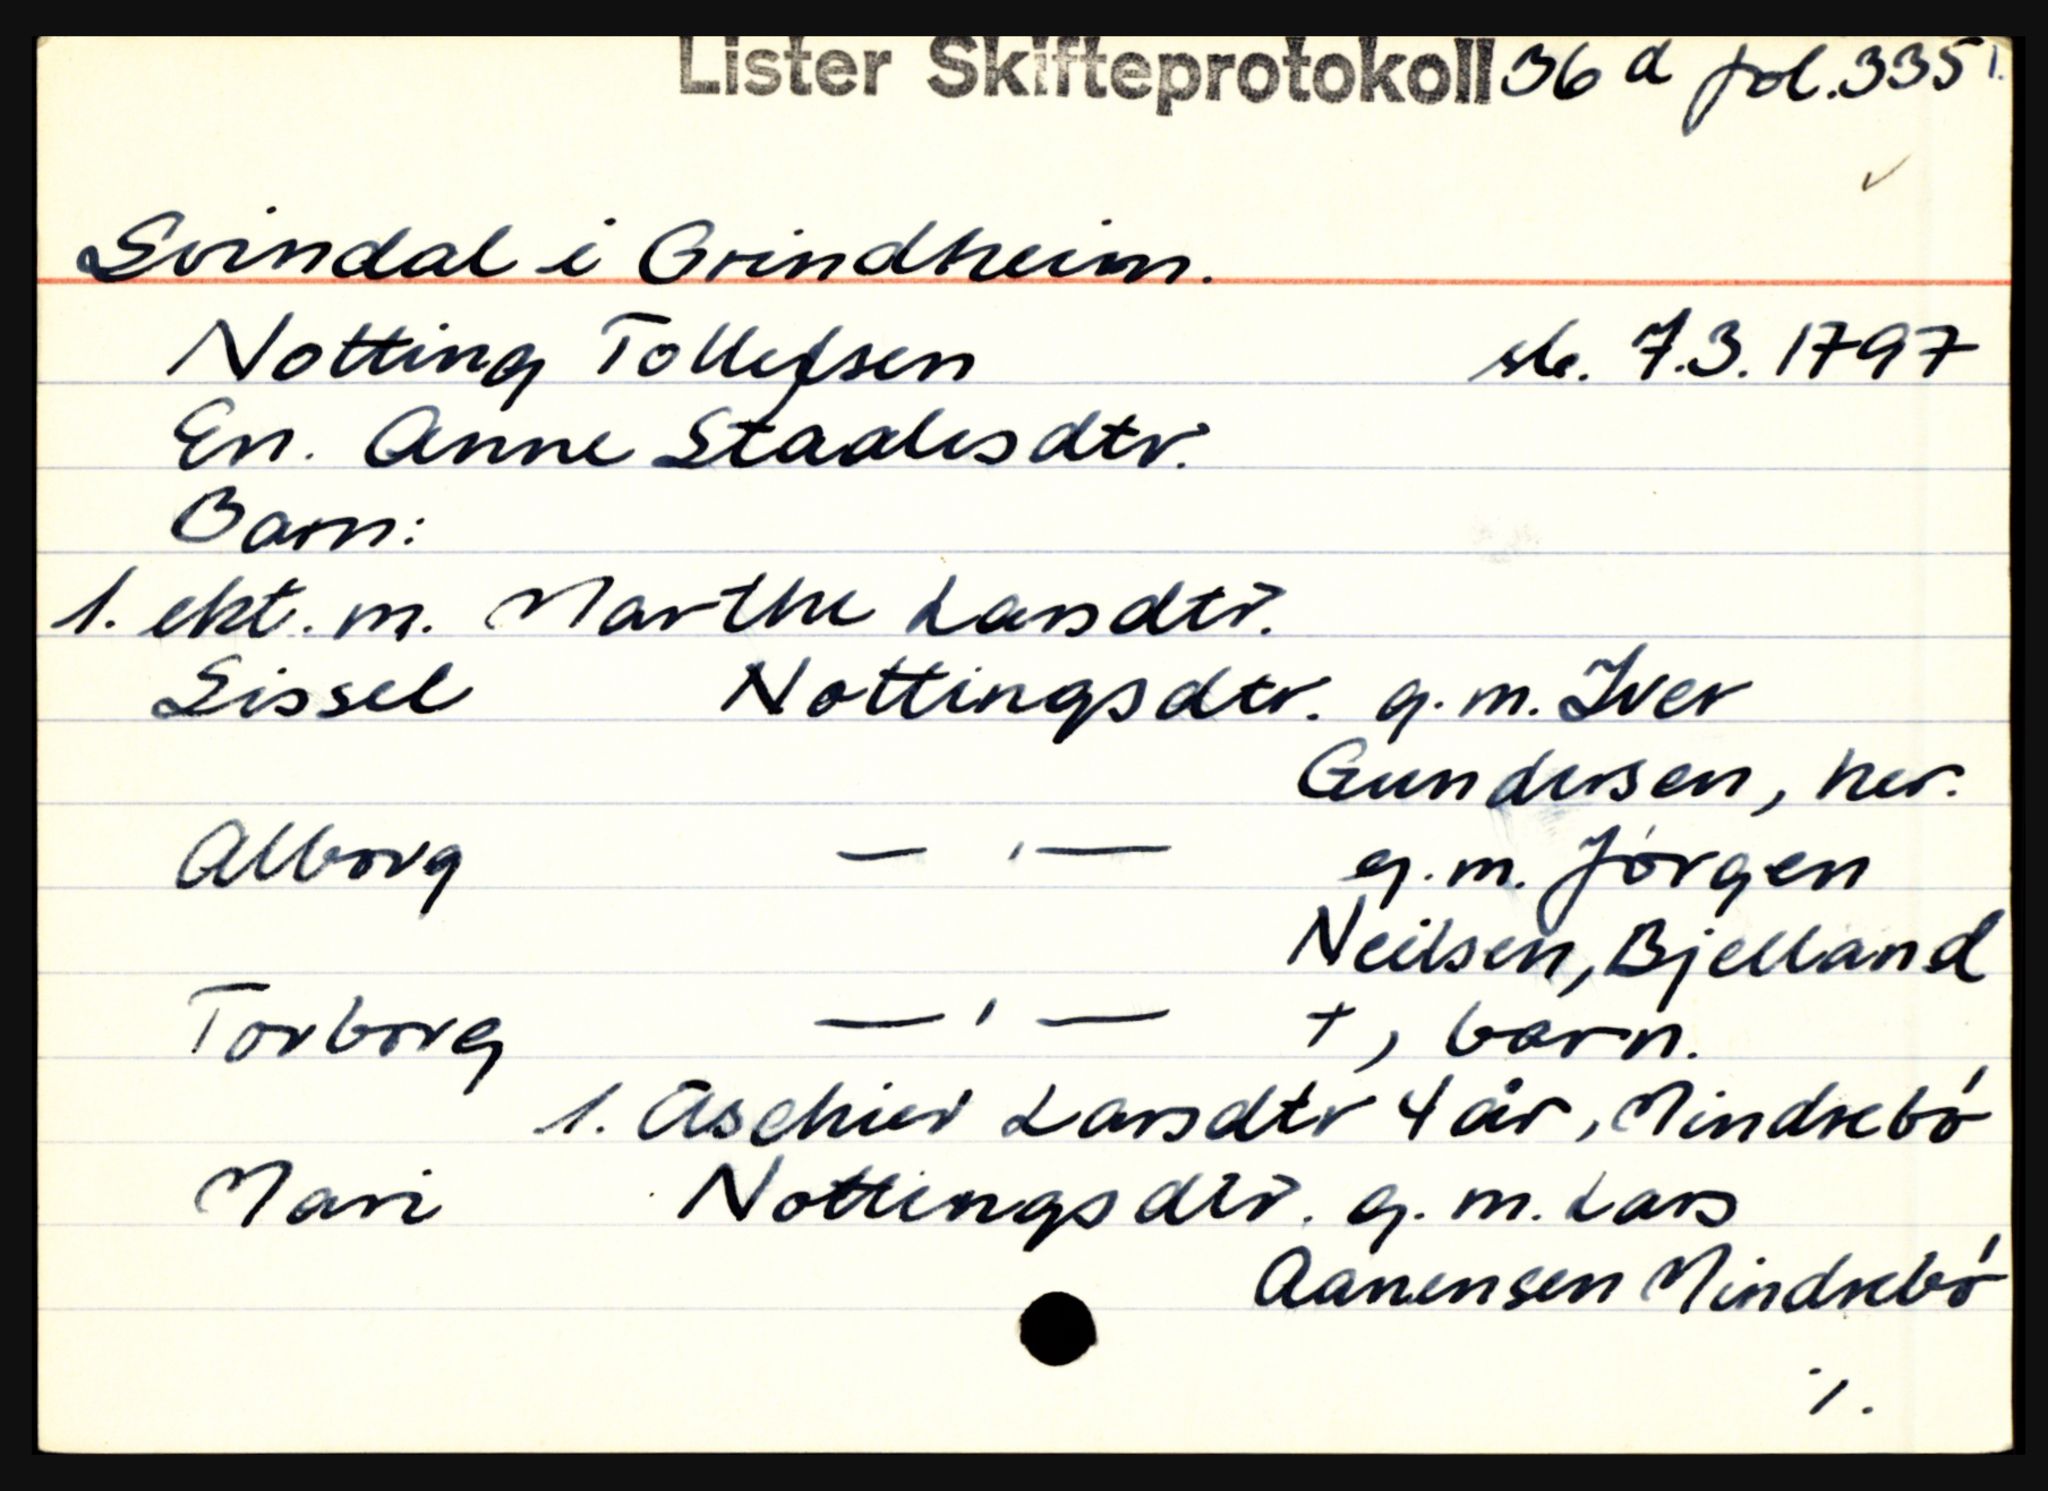 Lister Skifteprotokoll 36 a fol. 335 1.
Svindal i Grindheim.
Notting Tollefsen sk. 7.3. 1797
En. Anne Staalesdtr.
Barn:
1. ekt. m. Marthe Larsdtr.
Sissel Nottingsdtr. g.m. Iver
Gundersen, her.
Alborg — ' — g.m. Jørgen
Neilsen, Bjelland
Torborg — ' — +, barn.
1. Aschier Larsdtr 4 år, Mindrebø
Mari Nottingsdtr. g.m. Lars
Aanensen Mindrebø
./.